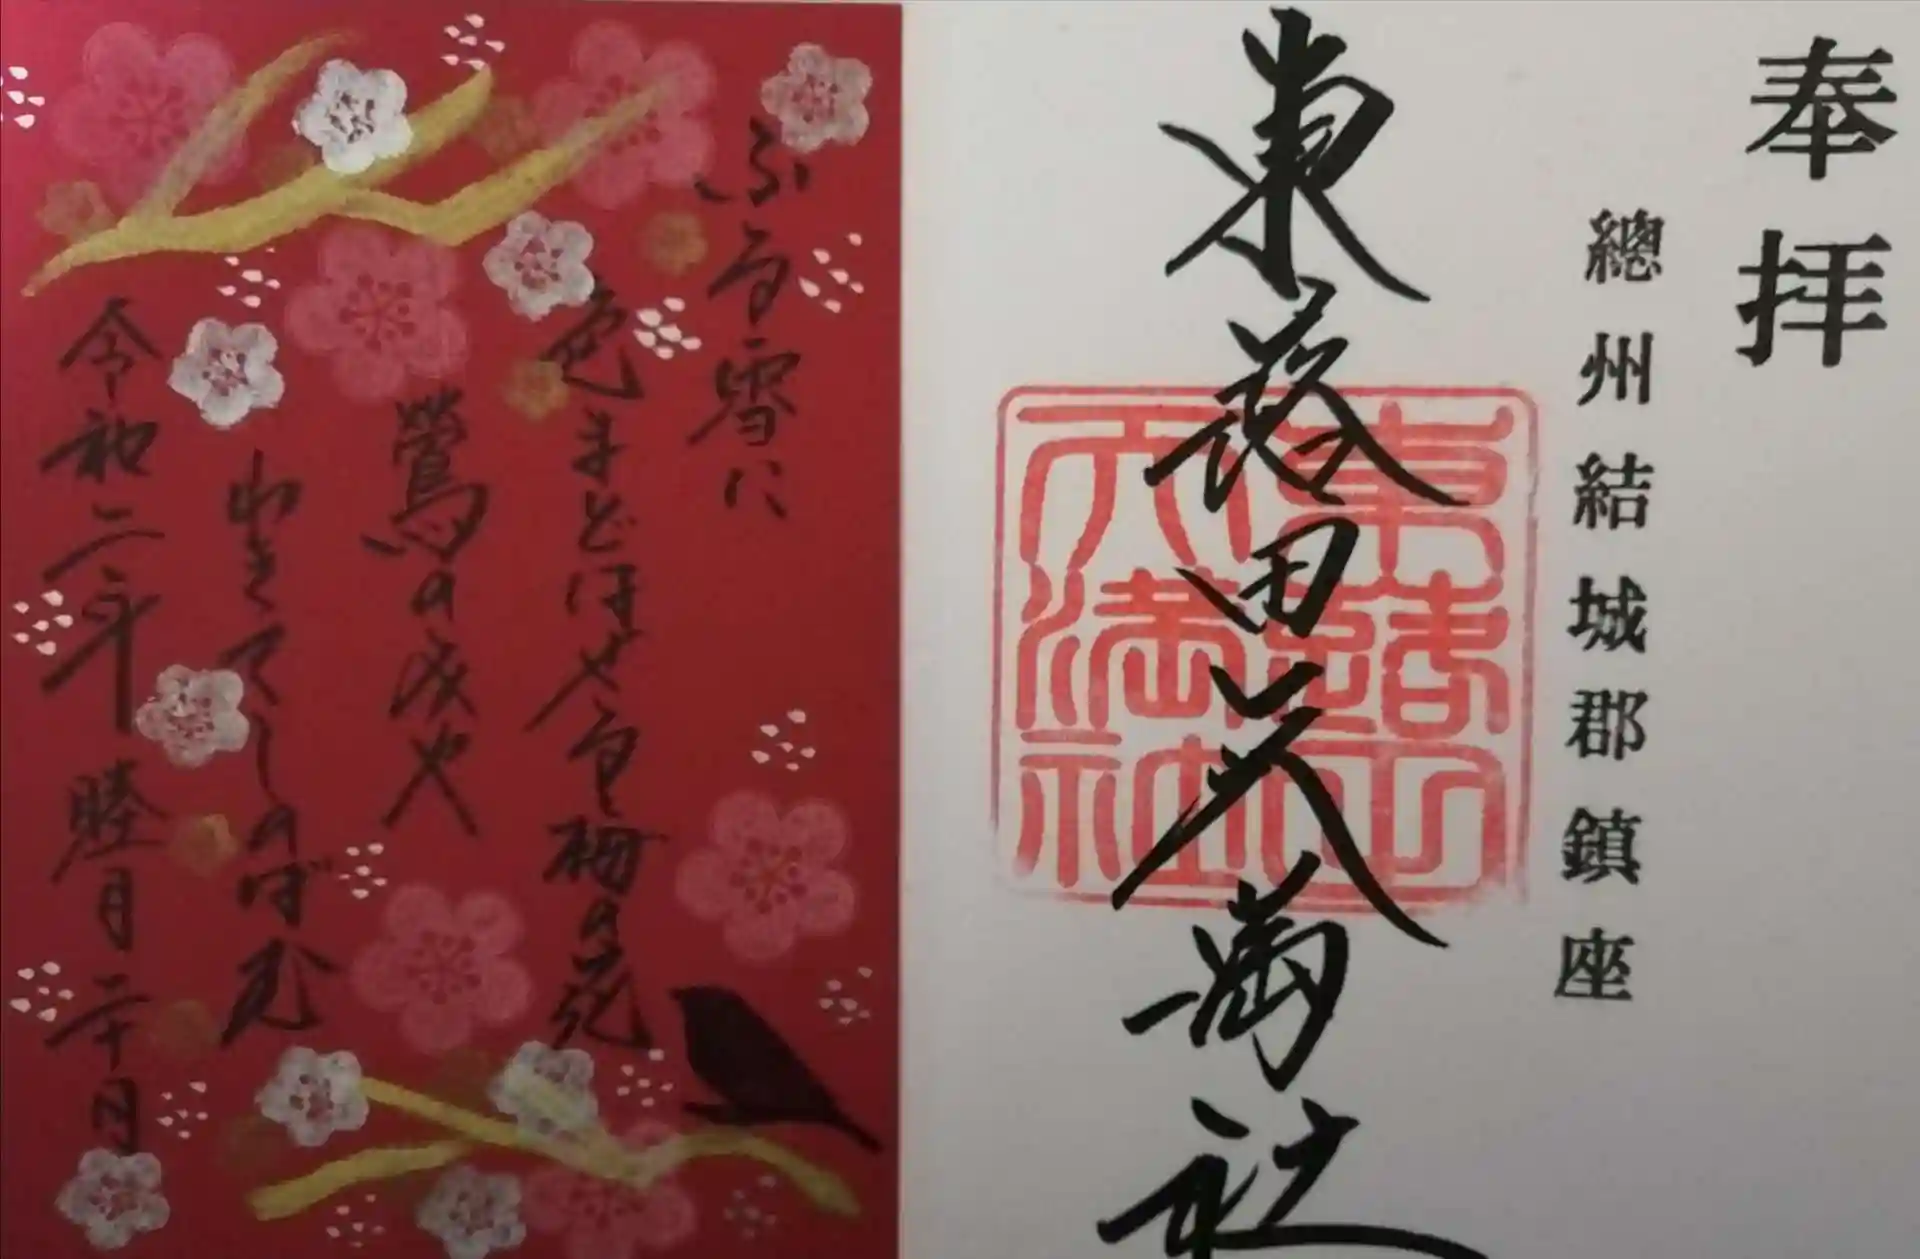 奉拝
總州結城郡鎮座
東蕗田天満社
東蕗田
天満社
ふる雪に
色まどはせる梅の花
鶯のみや
わきてしのばむ
令和二年睦月二十日